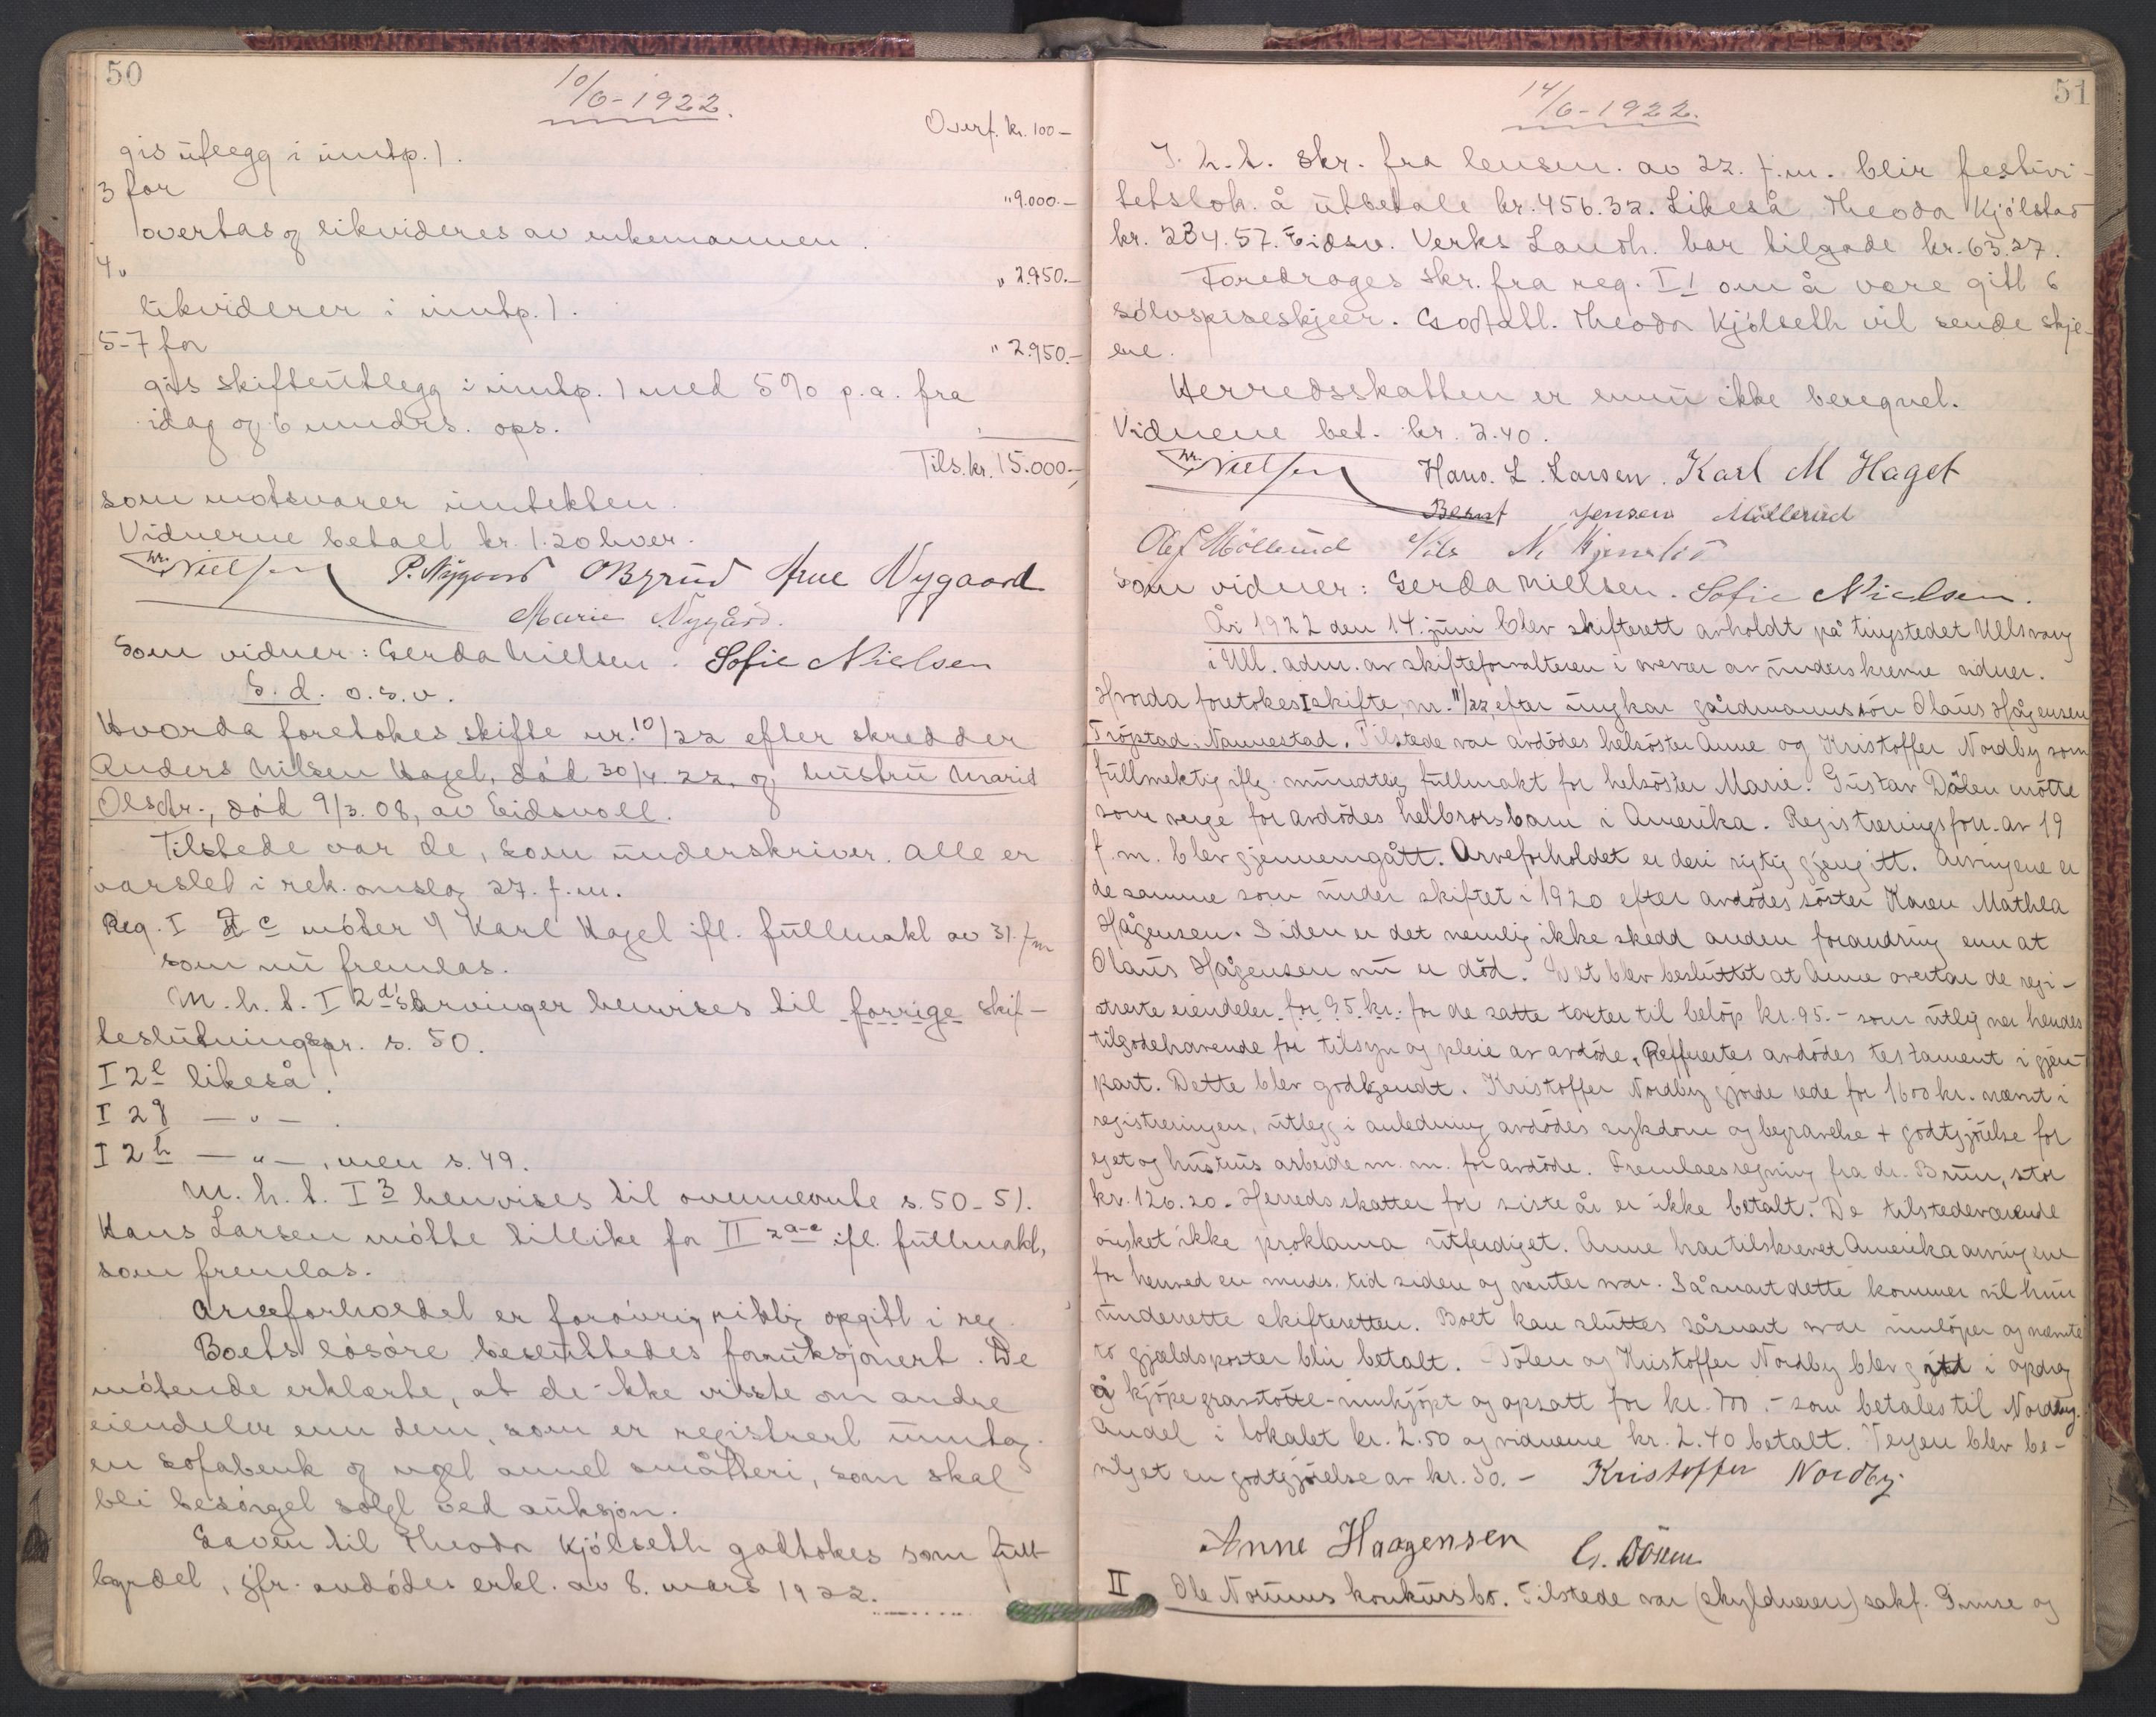 50
10/6-1922.
Overf. kr. 100-
gis utlegg i inntp. 1.
3 for "9.000.-
overtas og likvideres av enkemannen.
4 " " 2.950.-
likviderer i inntp. 1.
5-7 for " 2.950.-
gis skifteutlegg i inntp. 1 med 5% p.a. fra
idag og 6 mndrs. ops.
Tils. kr. 15.000.-
som motsvarer inntekten.
Vidnerne betalt kr. 1.20 hver.
Nielsen P. Nygaard O Byrud Arne Nygaard
Marie Nygård.
Som vidner: Gerda Nielsen. Sofie Nielsen
S. d. o.s.v.
Hvorda foretokes skifte nr. 10/22 efter skredder
Anders Nilsen Hagel, död 30/4. 22, og hustru Marid
Olsdtr., död 9/3. 08, av Eidsvoll.
Tilstede var de, som underskriver. Alle er
varslet i rek. onslag 27. f.m.
Reg. I c möter 4 Karl Hagel ifl. fullmakt av 31. f.m
som nu fremlas.
M. h. t. I 2 d's arvinger henvises til forrige skif-
teslutningspr. s. 50.
I 2 e likeså.
I 2 g - " - .
I 2 h - " -, men s. 49.
M. h. t. I 3 henvises til ovennevnte s. 50-51.
Hans Larsen mötte tillike for II 2 a-e ifl. fullmakt,
som fremlas.
Arveforholdet er forövrig riktig opgitt i reg.
Boets lösöre besluttedes forauksjonert. De
mötende erklærte, at de ikke visste om andre
eiendeler enn dem, som er registrert unntag.
en sofabenk og noget annet småtteri, som skal
bli besörget solgt ved auksjon.
Gaven til Theodor Kjölseth godtokes som full-
byrdet, jfr. avdödes erkl. av 8. mars 1922.
51
14/6-1922.
I. h. t. skr. fra lensm. av 22. f.m. blir festivi-
tetslok. å utbetale kr. 456.32. Likeså Theodor Kjölstad
kr. 234.57. Eidsv. Verks Landh. har tilgode kr. 63.27.
Foredroges skr. fra reg. I 1 om å være gitt 6
sölvspiseskjeer. Theodor Kjölseth vil sende skje-
ene.
Herredsskatten er ennu ikke beregnet.
Vidnene bet. kr. 2.40.
Nielsen Hans. L. Larsen. Karl M Hagel
Bernt Jensen Möllerud
Olef Möllerud Nils N.
Som vidner: Gerda Nielsen. Sofie Nielsen.
År 1922 den 14. juni blev skifterett avholdt på tingstedet Ullsvang
i Ull. adm. av skifteforvalteren i overvær av underskrevne vidner.
Hvorda foretokes I skifte nr. 11/22, efter ungkar gårdmannssön Olaus Hågensen
Tröpstad, Nannestad. Tilstede var avdödes helsöster Anne og Kristoffer Nordby som
fullmektig iflg. mundtlig fullmakt for helsöster Marie. Gustav Dölen mötte
som verge for avdödes helbrorsbarn i Amerika. Registreringsforr. av 19
f. m. blev gjennemgått. Arveforholdet er deri rigtig gjengitt. Arvingene er
de samme som under skiftet i 1920 efter avdödes söster Karen Mathea
Hågensen. Siden er det nemlig ikke skedd anden forandring enn at
Olaus Hågensen nu er död. Det blev besluttet at Anne overtar de regi-
strerte eiendeler for 95 kr. for de satte takster til belöp kr. 95.- som utlig ner hendes
tilgodehavende for tilsyn og pleie av avdöde. Refferertes avdödes testament i gjen-
part. Dette blev godkjendt. Kristoffer Nordby gjorde rede for 1600 kr. nævnt i
registreringen, utlegg i anledning avdödes sykdom og begravelse + godtgjörelse for
eget og hustrus arbeide m. m. for avdöde. Fremlaes regning fra dr. Bruun, stor
kr. 126.20. Herredsskatter for siste år er ikke betalt. De tilstedeværende
önsket ikke proklama utferdiget. Anne har tilskrevet Amerika arvingene
for henved en mnds. tid siden og venter svar. Så snart dette kommer vil hun
underrette skifteretten. Boet kan sluttes såsnart svar innlöper og nævnte
to gjældsposter blir betalt. Dölen og Kristoffer Nordby blev gitt i opdrag
å kjöpe gravstötte - innkjöpt og opsatt for kr. 700.- som betales til Nordby.
Andel i lokalet kr. 2.50 og vidnene kr. 2.40 betalt. Vergen blev be-
vilget en godtgjörelse av kr. 30.- Kristoffer Nordby
Anne Haagensen G. Dölen
II Ole Normus konkursbo. Tilstede var (skyldneren) sakf. og